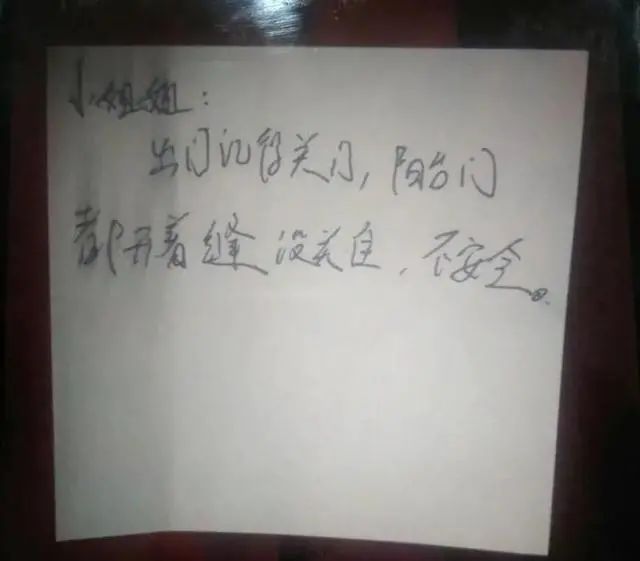 小姐姐：
出门记得关门，阳台门
都开着缝没关自，不安全。